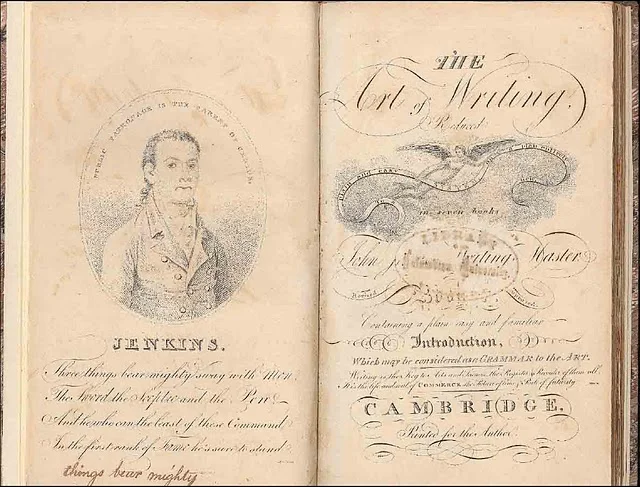 PUBLIC PATRONAGE IS THE PARENT OF
JENKINS.
Three things bear mighty sway with Men
The Sword, the Sceptre and the Pen
And he who can the least of these Command
In the first rank of Fame he's sure to stand
things bear mighty
THE
Art of Writing,
Reduced
PLAIN AND EASY
in seven Books
John Writing Master
LIBRARY
Revised
BOOK I.
Containing a plain easy and familiar
Introduction,
Which may be considered as a GRAMMAR to the ART.
Writing is the Key to Arts and Sciences the Register & Recorder of them all
It is the life and soul of COMMERCE the Picture of time & Rule of futurity
CAMBRIDGE.
Printed for the Author.